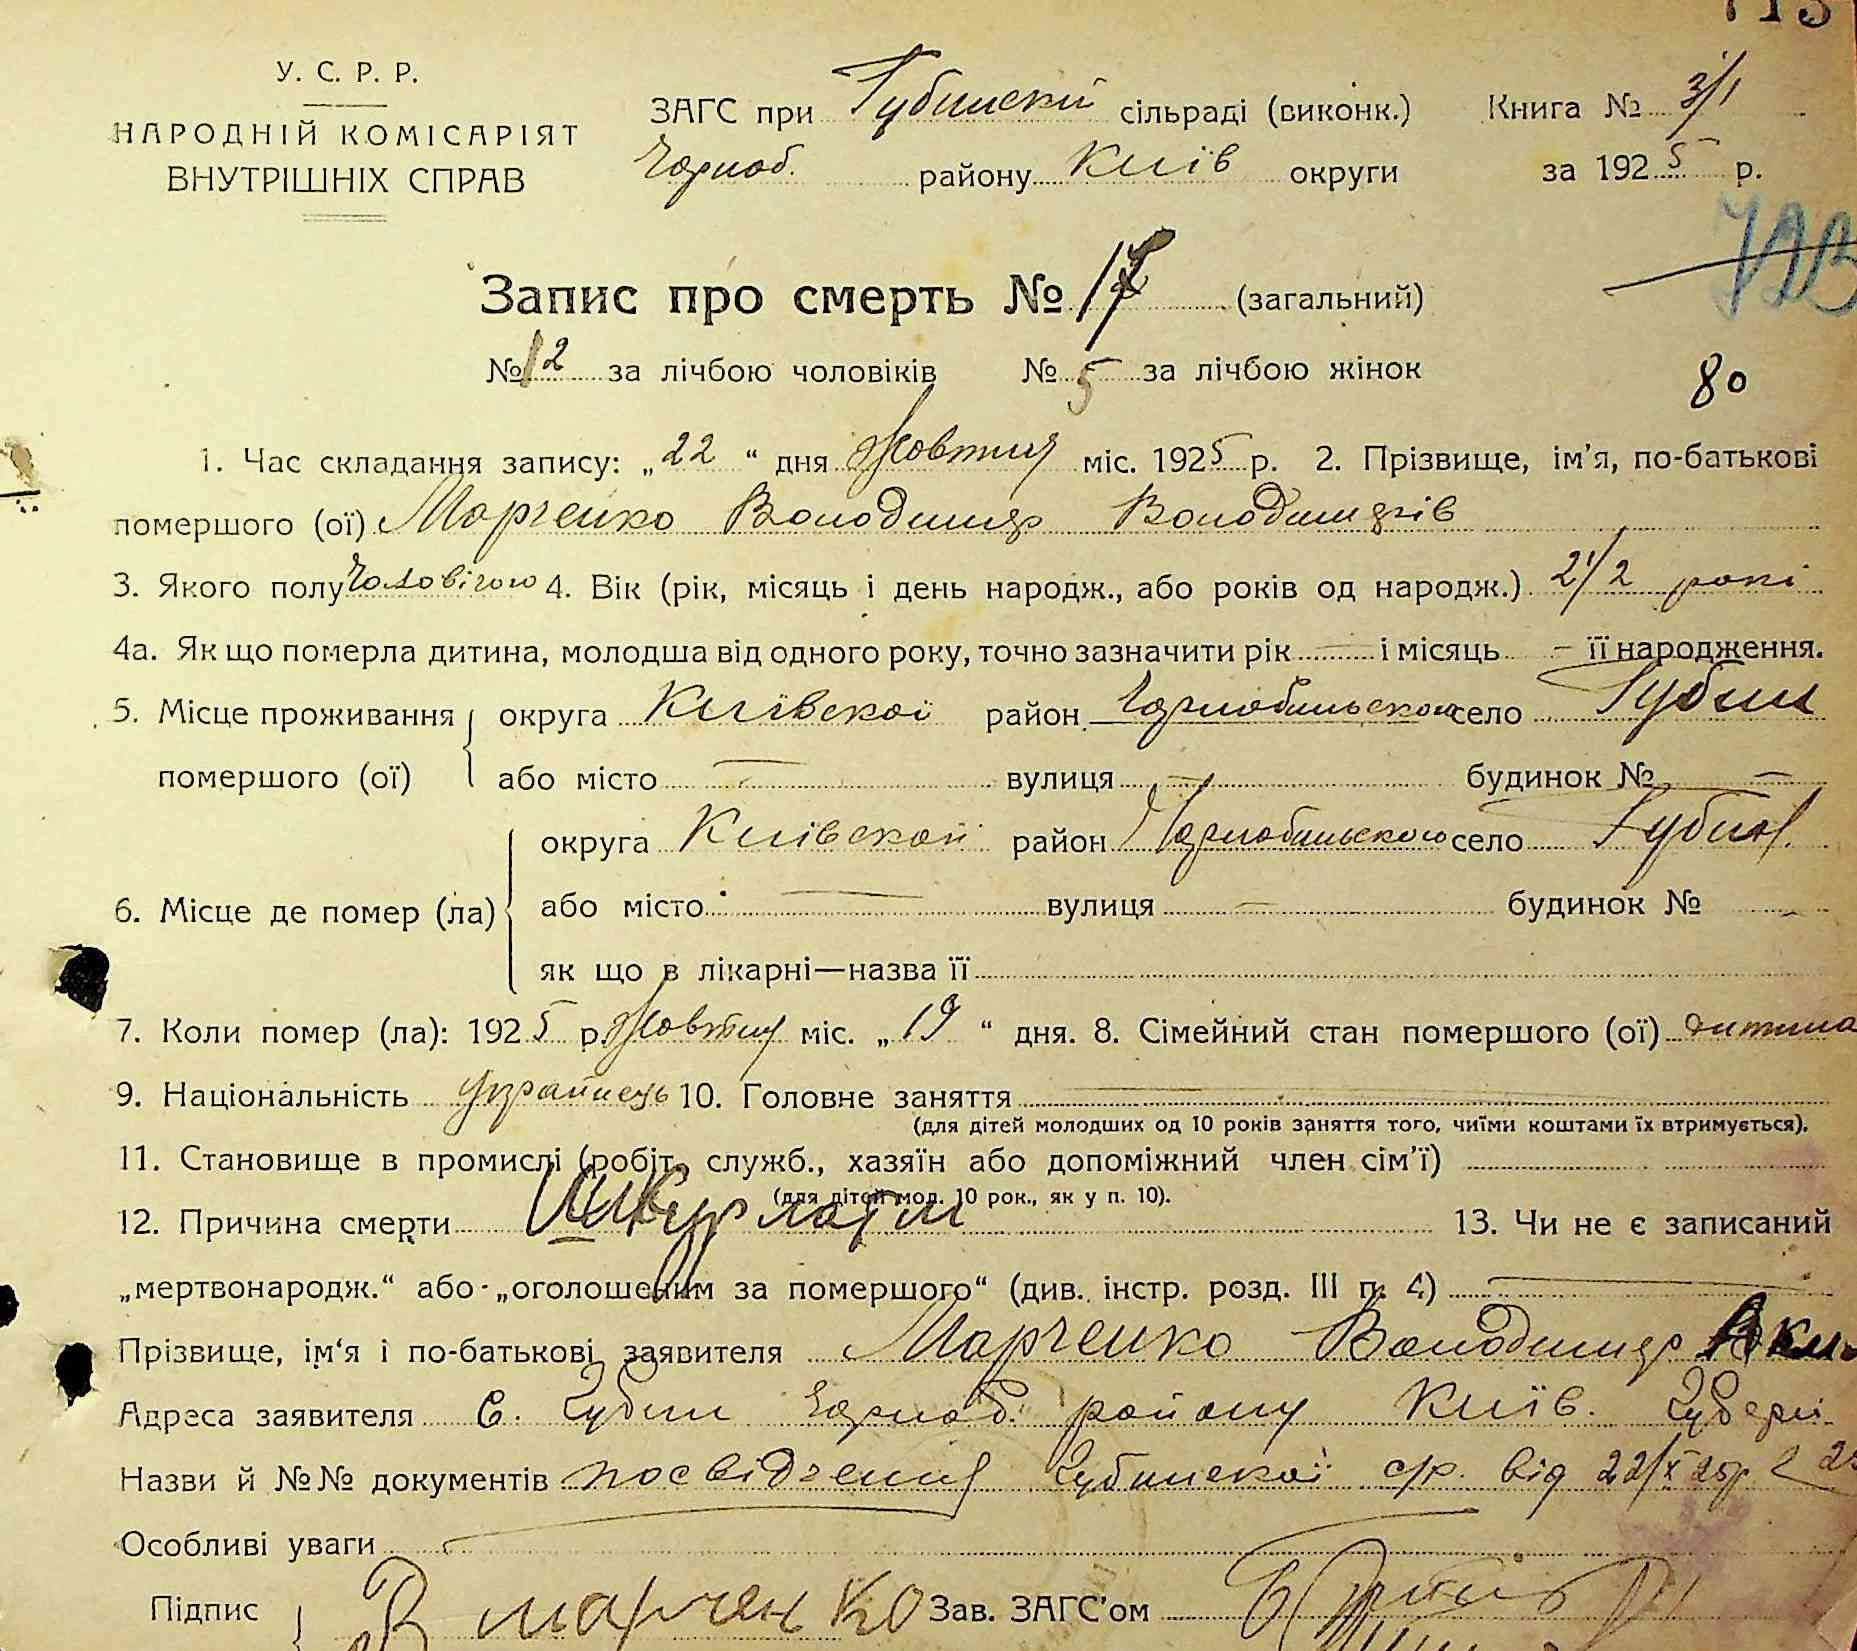 713
У. С. Р. Р.
НАРОДНІЙ КОМІСАРІЯТ
ВНУТРІШНІХ СПРАВ
ЗАГС при Губинскій сільраді (виконк.) Книга № 3/1
Чорноб. району Київ округи за 1925 р.
Запис про смерть № 17 (загальний)
№ 12 за лічбою чоловіків № 5 за лічбою жінок
80
1. Час складання запису: „22“ дня Жовтня міс. 1925 р. 2. Прізвище, ім’я, по-батькові
помершого (ої) Марченко Володимир Володимирів
3. Якого полу Чоловічого 4. Вік (рік, місяць і день народж., або років од народж.) 2 1/2 рокі
4а. Як що померла дитина, молодша від одного року, точно зазначити рік — і місяць — її народження.
5. Місце проживання округа Київскої район Чорнобильского село Губин
помершого (ої) або місто — вулиця — будинок № —
округа Київской район Чорнобильского село Губин
6. Місце де помер (ла) або місто — вулиця — будинок № —
як що в лікарні—назва її
7. Коли помер (ла): 1925 р. Жовтня міс. „19“ дня. 8. Сімейний стан помершого (ої) дитина
9. Національність Українець 10. Головне заняття —
(для дітей молодших од 10 років заняття того, чиїми коштами їх втримується).
11. Становище в промислі (робіт., служб., хазяїн або допоміжний член сім’ї)
(для дітей мол. 10 рок., як у п. 10).
12. Причина смерти 13. Чи не є записаний
„мертвонародж.“ або „оголошеним за помершого“ (див. інстр. розд. III п. 4) —
Прізвище, ім‘я і по-батькові заявителя Марченко Володимир
Адреса заявителя С. Губин Чорноб. району Київ. Губерні
Назви й №№ документів посвідчення Губинскої с/р. від 22/X 25р
Особливі уваги —
Підпис В Марченко Зав. ЗАГС’ом